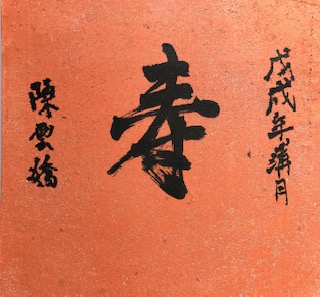 戊戌年蒲月
寿
陳雲嬌